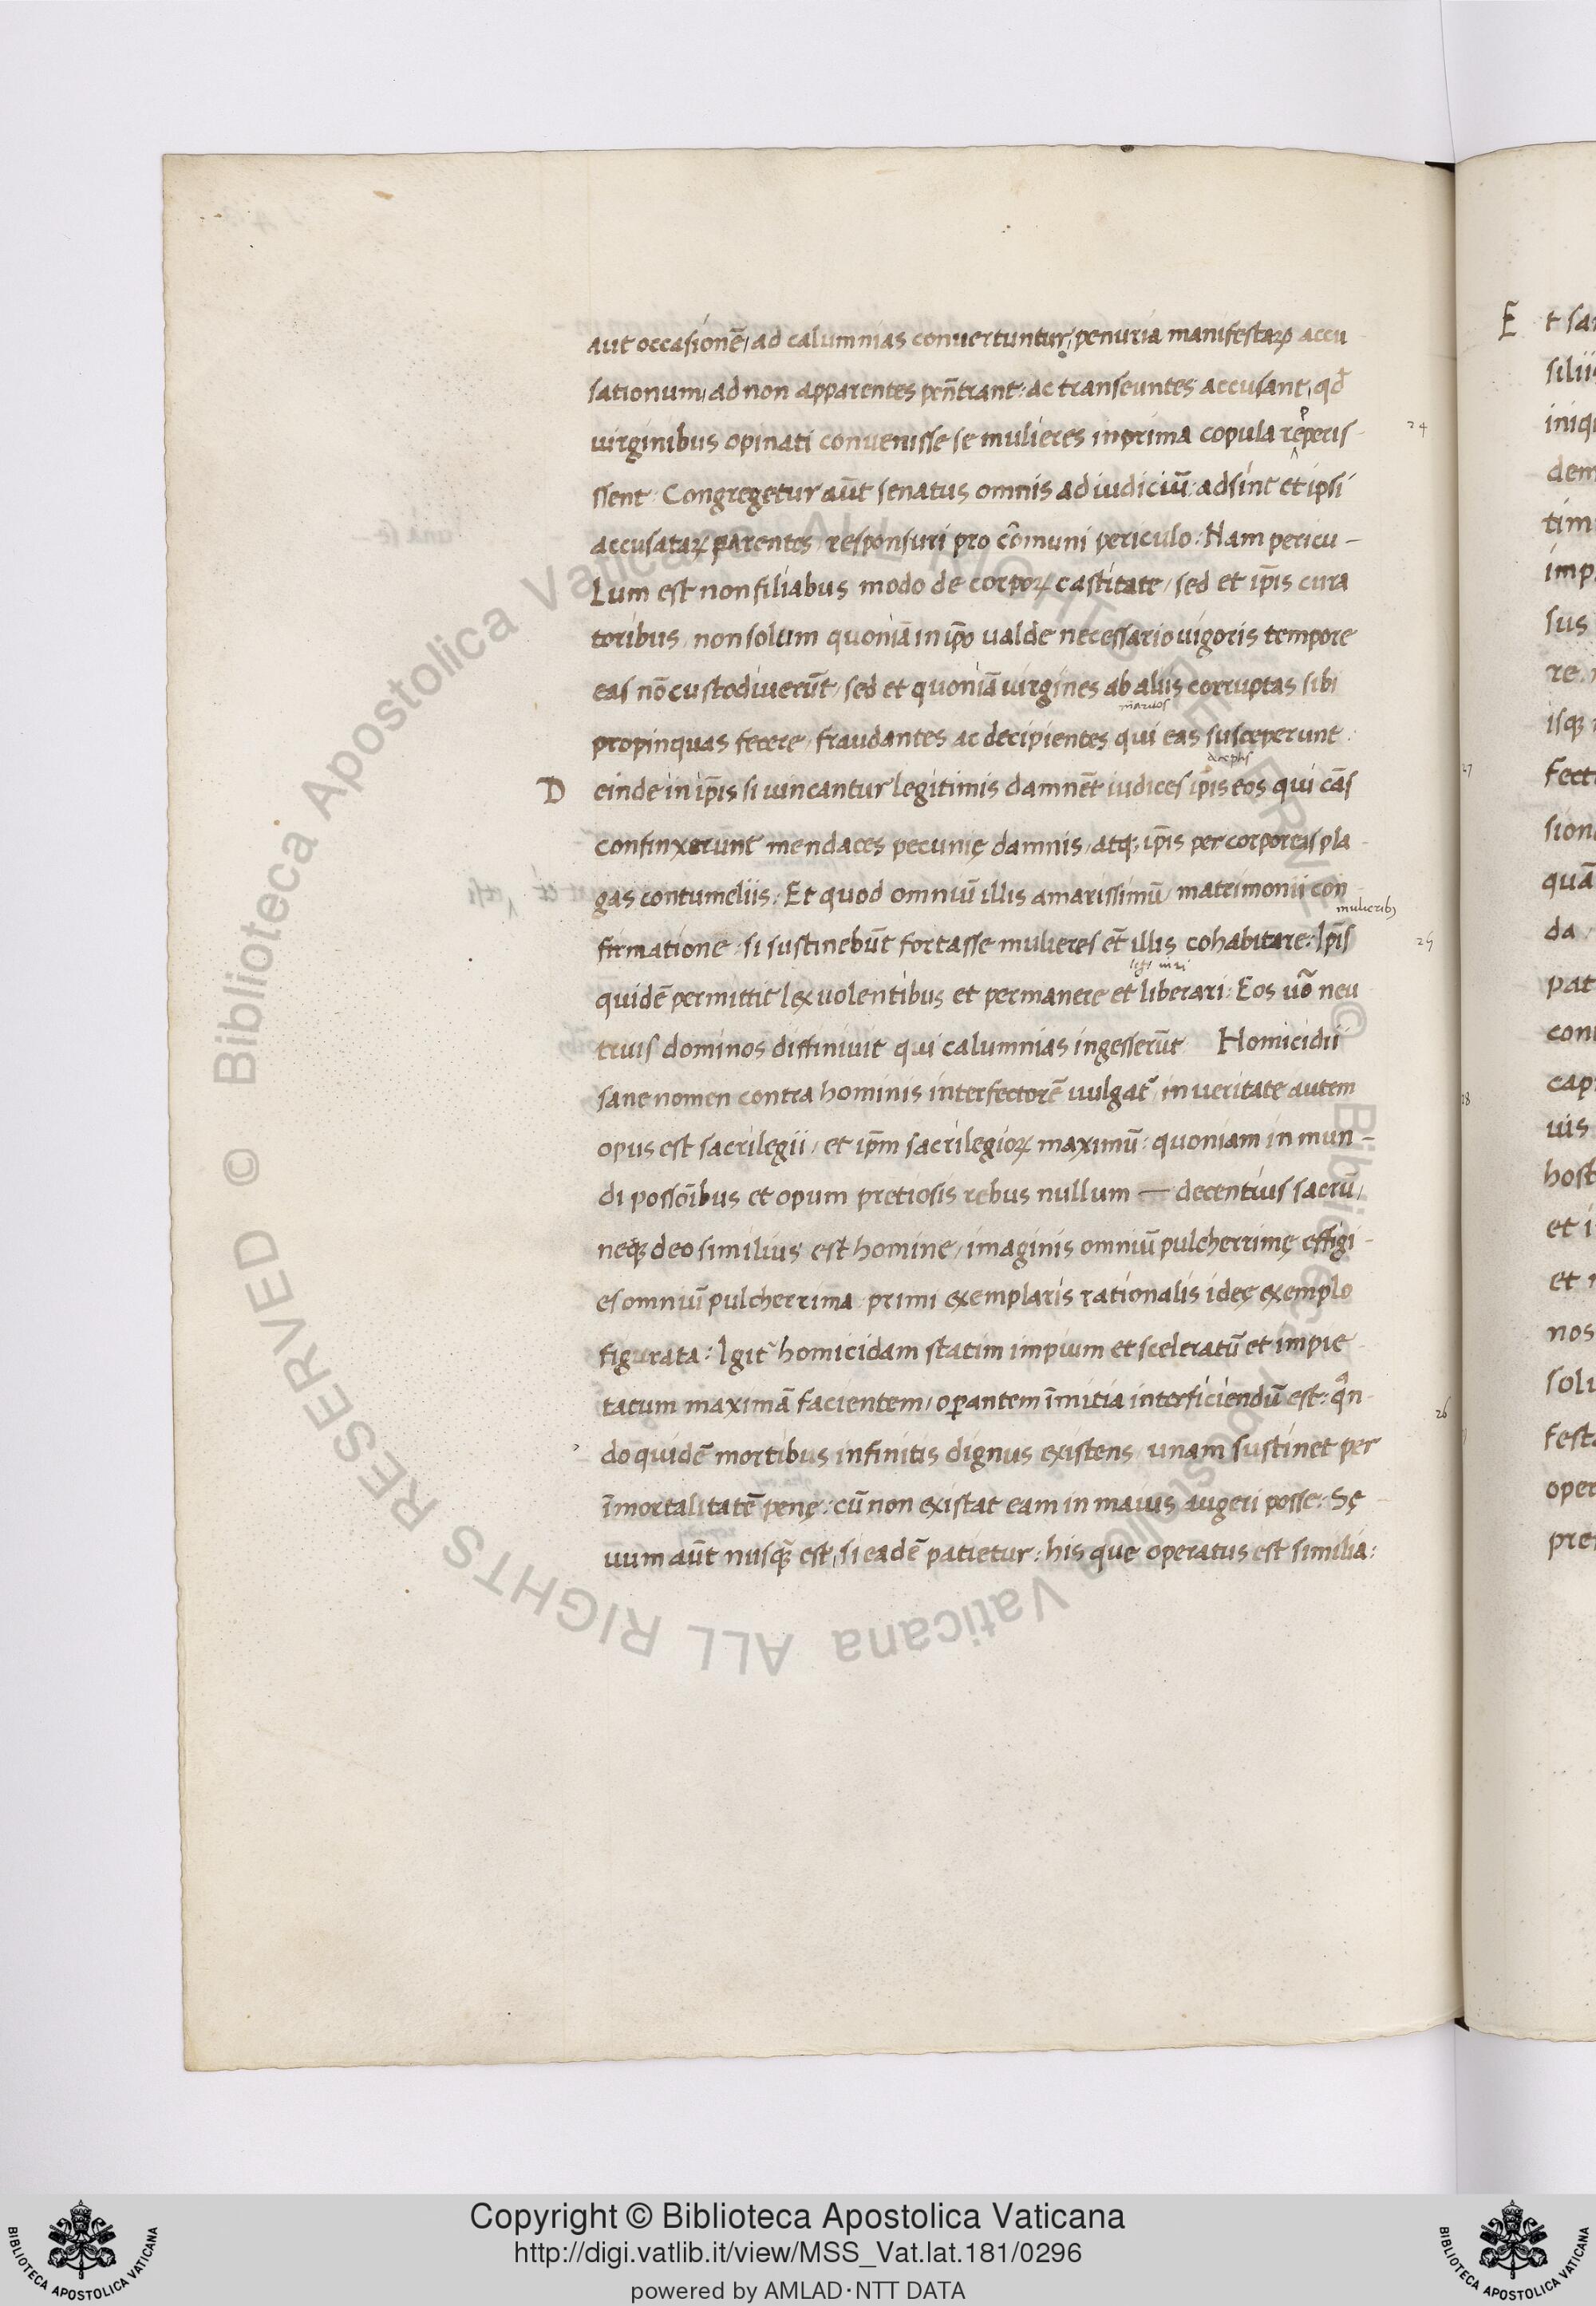 aut occasionē, ad calumnias conuertuntur, penuria manifestaꝝ accu
sationum, ad non apparentes pen̄trant: ac transeuntes accusant, qđ
uirginibus opinati conuenisse se mulieres in prima copula repperis-
ssent: Congregetur aūt senatus omnis ad iudiciū: adsint et ipsi
accusataꝝ parentes responsuri pro cōmuni periculo: Nam pericu-
lum est non filiabus modo de corpoꝝ castitate, sed et ip̄is cura
toribus, non solum quoniā in ip̄o ualde necessario uigoris tempore
eas nō custodiuerūt, sed et quoniā uirgines ab aliis corruptas sibi
maritos
propinquas fecere, fraudantes ac decipientes qui eas susceperunt.
deceptis
Deinde in ip̄is si uincantur legitimis damnēt iudices ip̄is eos qui cās
confinxerunt mendaces pecunię damnis, atq; ip̄is per corporeas pla
gas contumeliis: Et quod omniū illis amarissimū, matrimonii con
mulierib;
firmatione si sustinebūt fortasse mulieres et illis cohabitare: Ip̄is
quidē permittit lex uolentibus et permanere et liberari: Eos uō neu
truis dominos diffiniuit qui calumnias ingesserūt Homicidii
sane nomen contra hominis interfectorē uulgat̄, in ueritate autem
opus est sacrilegii, et ip̄m sacrilegioꝝ maximū: quoniam in mun-
di possōibus et opum pretiosis rebus nullum — decentius sacrū,
neq; deo similius est homine, imaginis omniū pulcherrimę effigi-
es omniū pulcherrima primi exemplaris rationalis ideę exemplo
figurata: Igit̄ homicidam statim impium et sceleratū et impie
tatum maximā facientem, opantem īmitia interficiendū est: qn̄
do quidē mortibus infinitis dignus existens unam sustinet per
īmortalitatē penę: cū non existat eam in maius augeri posse: Sę
uum aūt nusq̄ est, si eadē patietur: his que operatus est similia:
24
25
26
E t sa
silii
iniq
dem
tim
imp
sus
re
isq;
27
fect
sion
quā
da
pat
con
cap
28
uis
host
et i
et
nos
solu
fest
oper
pre
Copyright © Biblioteca Apostolica Vaticana
http://digi.vatlib.it/view/MSS_Vat.lat.181/0296
powered by AMLAD·NTT DATA
© Biblioteca Apostolica Vaticana ALL RIGHTS RESERVED
© Biblioteca Apostolica Vaticana ALL RIGHTS RESERVED
BIBLIOTECA APOSTOLICA VATICANA
BIBLIOTECA APOSTOLICA VATICANA